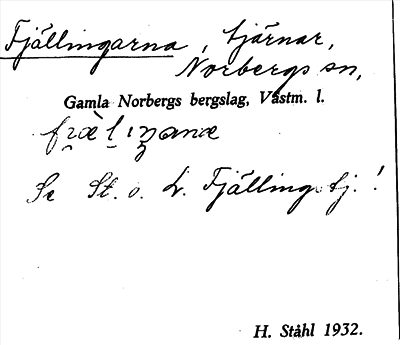 Fjällingarna, tjärnar,
Norbergs sn,
Gamla Norbergs bergslag, Västm. l.
Se St. o. L. Fjällingstj.!
H. Ståhl 1932.